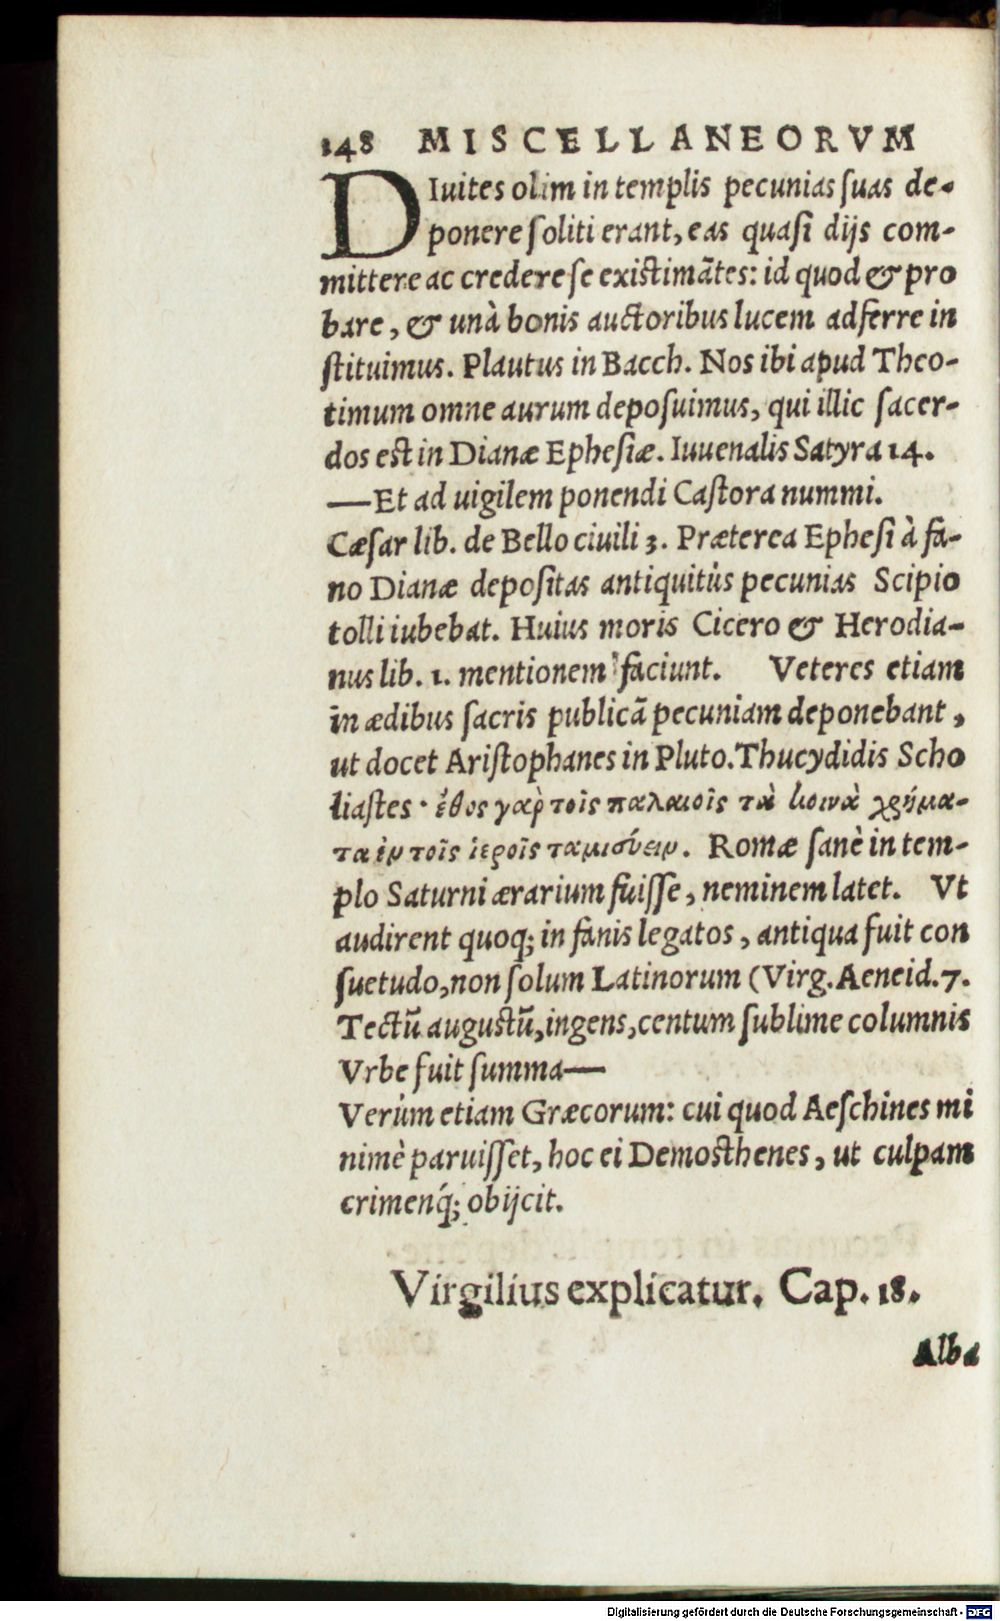 148 MISCELLANEORVM
DIuites olim in templis pecunias suas de-
ponere soliti erant, eas quasi dijs com-
mittere ac credere se existimãtes: id quod & pro
bare, & unà bonis auctoribus lucem adferre in
stituimus. Plautus in Bacch. Nos ibi apud Theo-
timum omne aurum deposuimus, qui illic sacer-
dos est in Dianæ Ephesiæ. Iuuenalis Satyra 14.
—Et ad uigilem ponendi Castora nummi.
Cæsar lib. de Bello ciuili 3. Præterea Ephesi à fa-
no Dianæ depositas antiquitùs pecunias Scipio
tolli iubebat. Huius moris Cicero & Herodia-
nus lib. 1. mentionem faciunt. Veteres etiam
in ædibus sacris publicã pecuniam deponebant,
ut docet Aristophanes in Pluto. Thucydidis Scho
liastes · ἔθος γαρ̀ τοῖς παλαιοῖς τὰ κοινὰ χρήμα-
τα ἐν τοῖς ἱεροῖς ταμιεύειν. Romæ sanè in tem-
plo Saturni ærarium fuisse, neminem latet. Vt
audirent quoq; in fanis legatos, antiqua fuit con
suetudo, non solum Latinorum (Virg. Aeneid. 7.
Tectũ augustũ, ingens, centum sublime columnis
Vrbe fuit summa—
Verùm etiam Græcorum: cui quod Aeschines mi
nimè paruisset, hoc ei Demosthenes, ut culpam
crimenq́; obijcit.
Virgilius explicatur. Cap. 18.
Alba
Digitalisierung gefördert durch die Deutsche Forschungsgemeinschaft - DFG